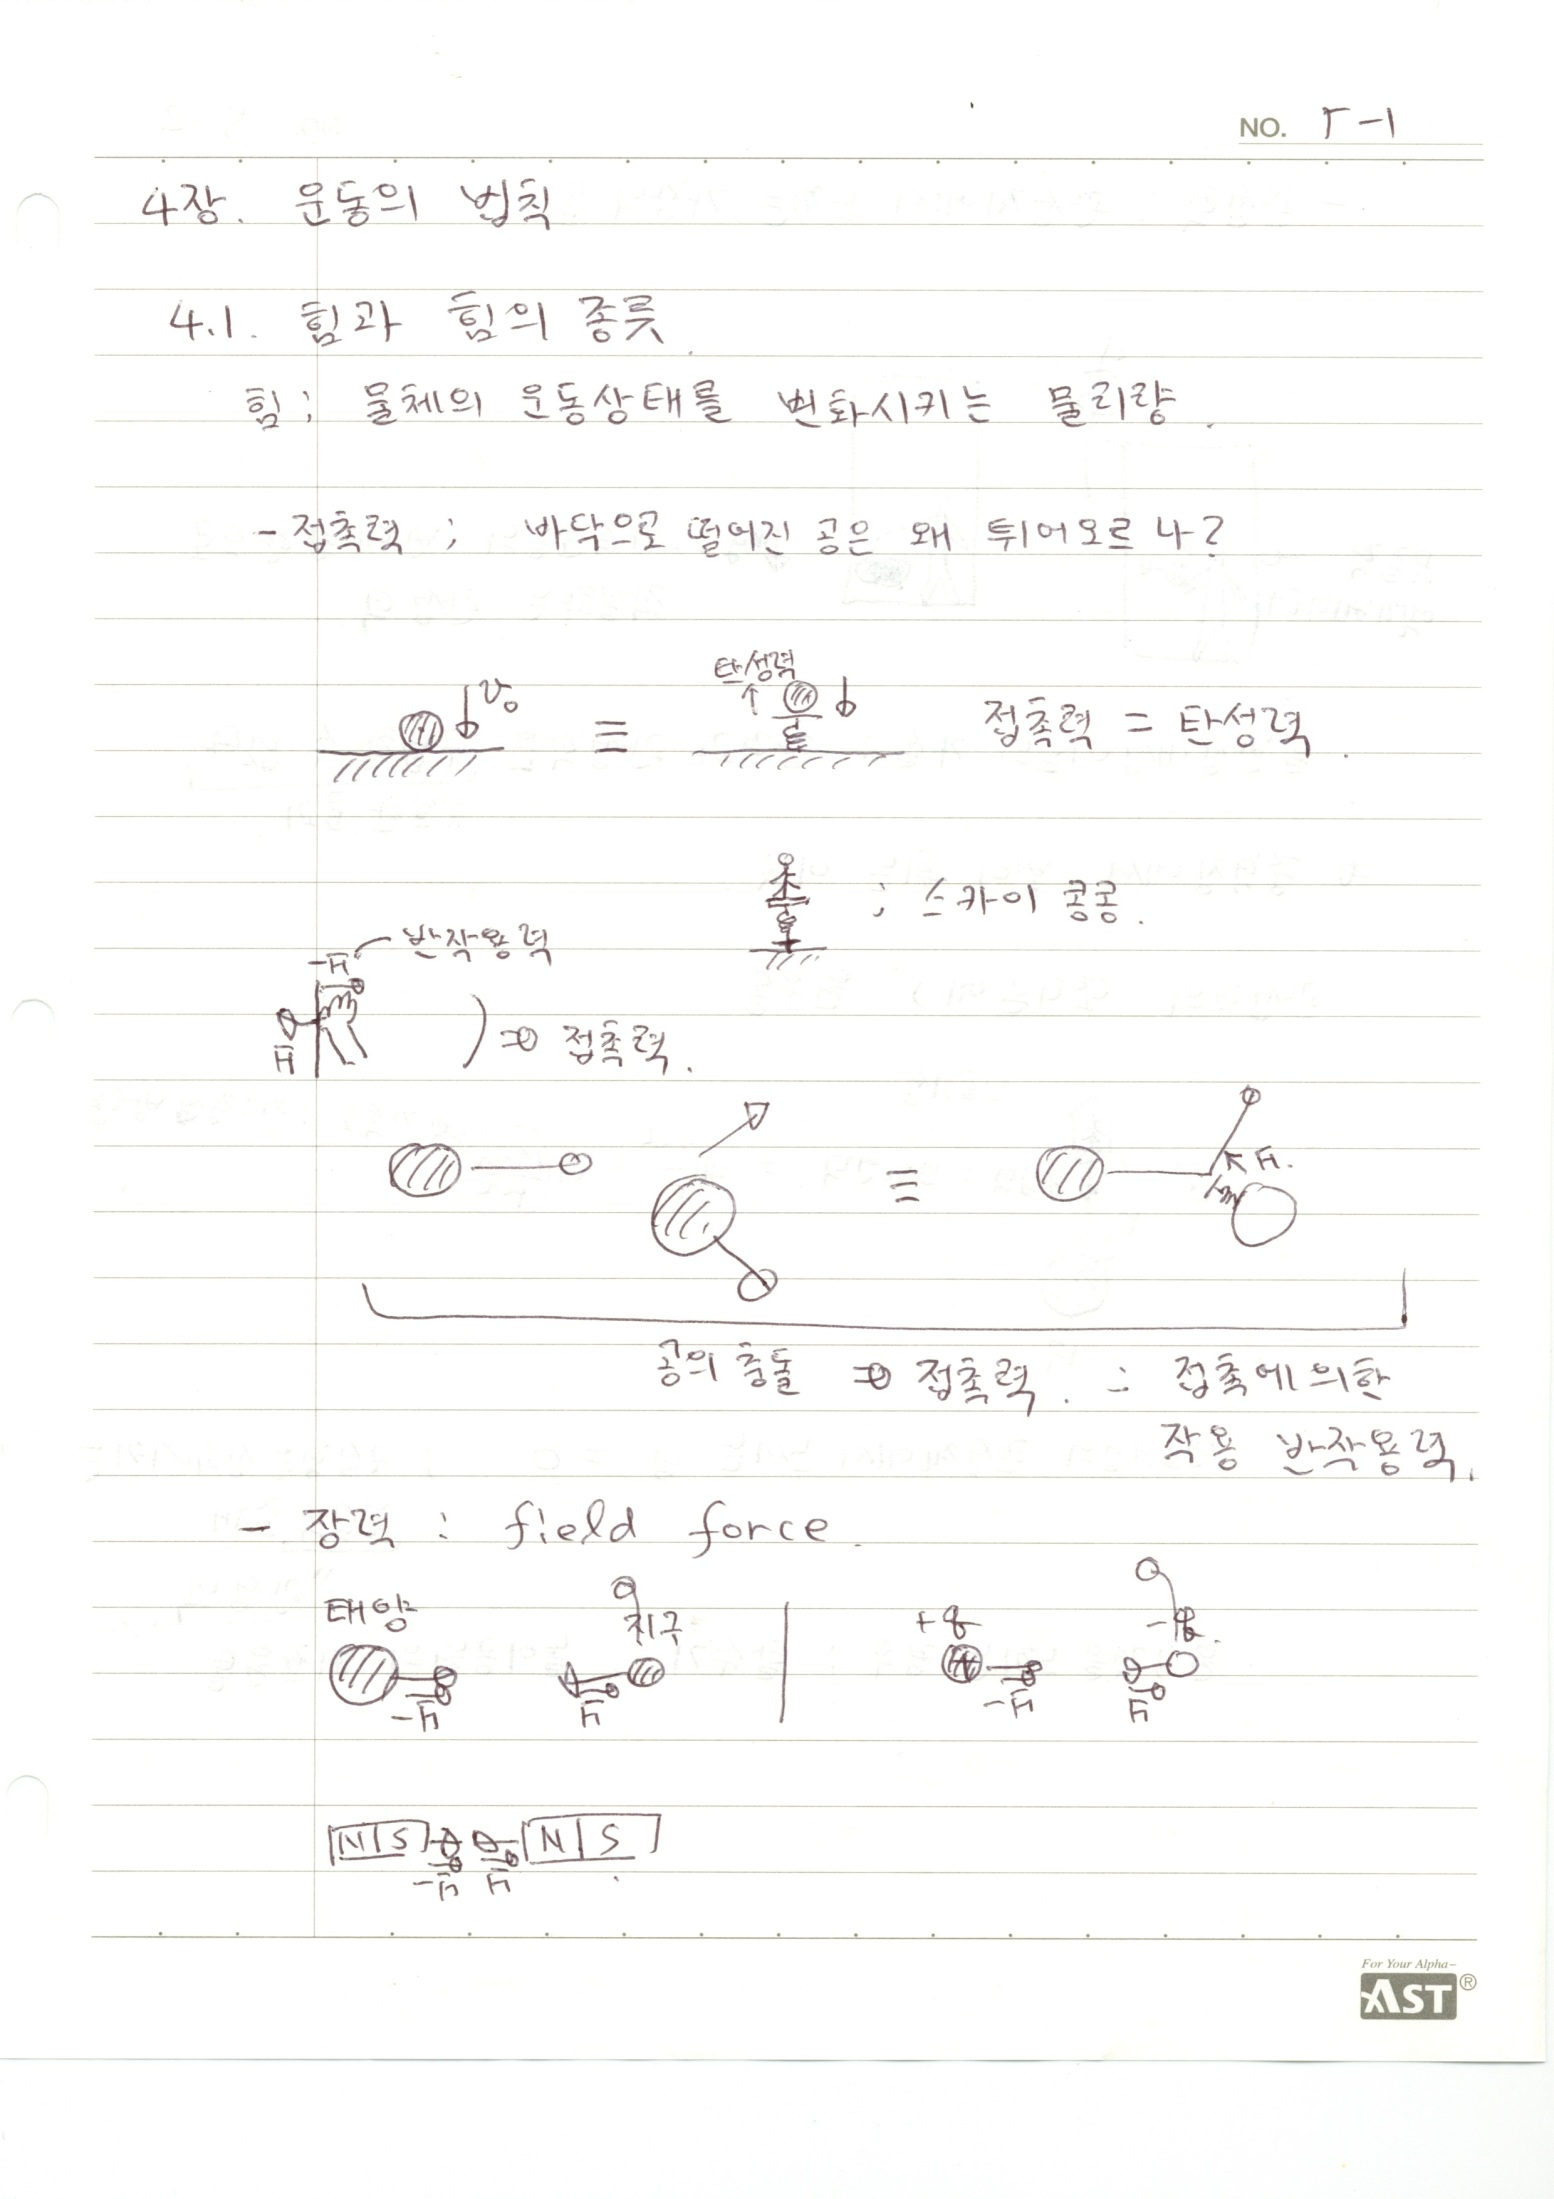 NO. 5-1
4장. 운동의 법칙
4.1. 힘과 힘의 종륫
힘; 물체의 운동상태를 변화시키는 물리량.
- 접촉력; 바닥으로 떨어진 공은 왜 튀어오르나?
탄성력
v₀
≡
접촉력 = 탄성력.
; 스카이 콩콩.
반작용력
-F
F
) ⇒ 접촉력.
≡
F.
공의 충돌 ⇒ 접촉력. ∴ 접촉에 의한
작용 반작용력.
- 장력 : field force.
태양 지구 +q -q.
-F F -F F
N S N S
-F F
For Your Alpha-
AST®